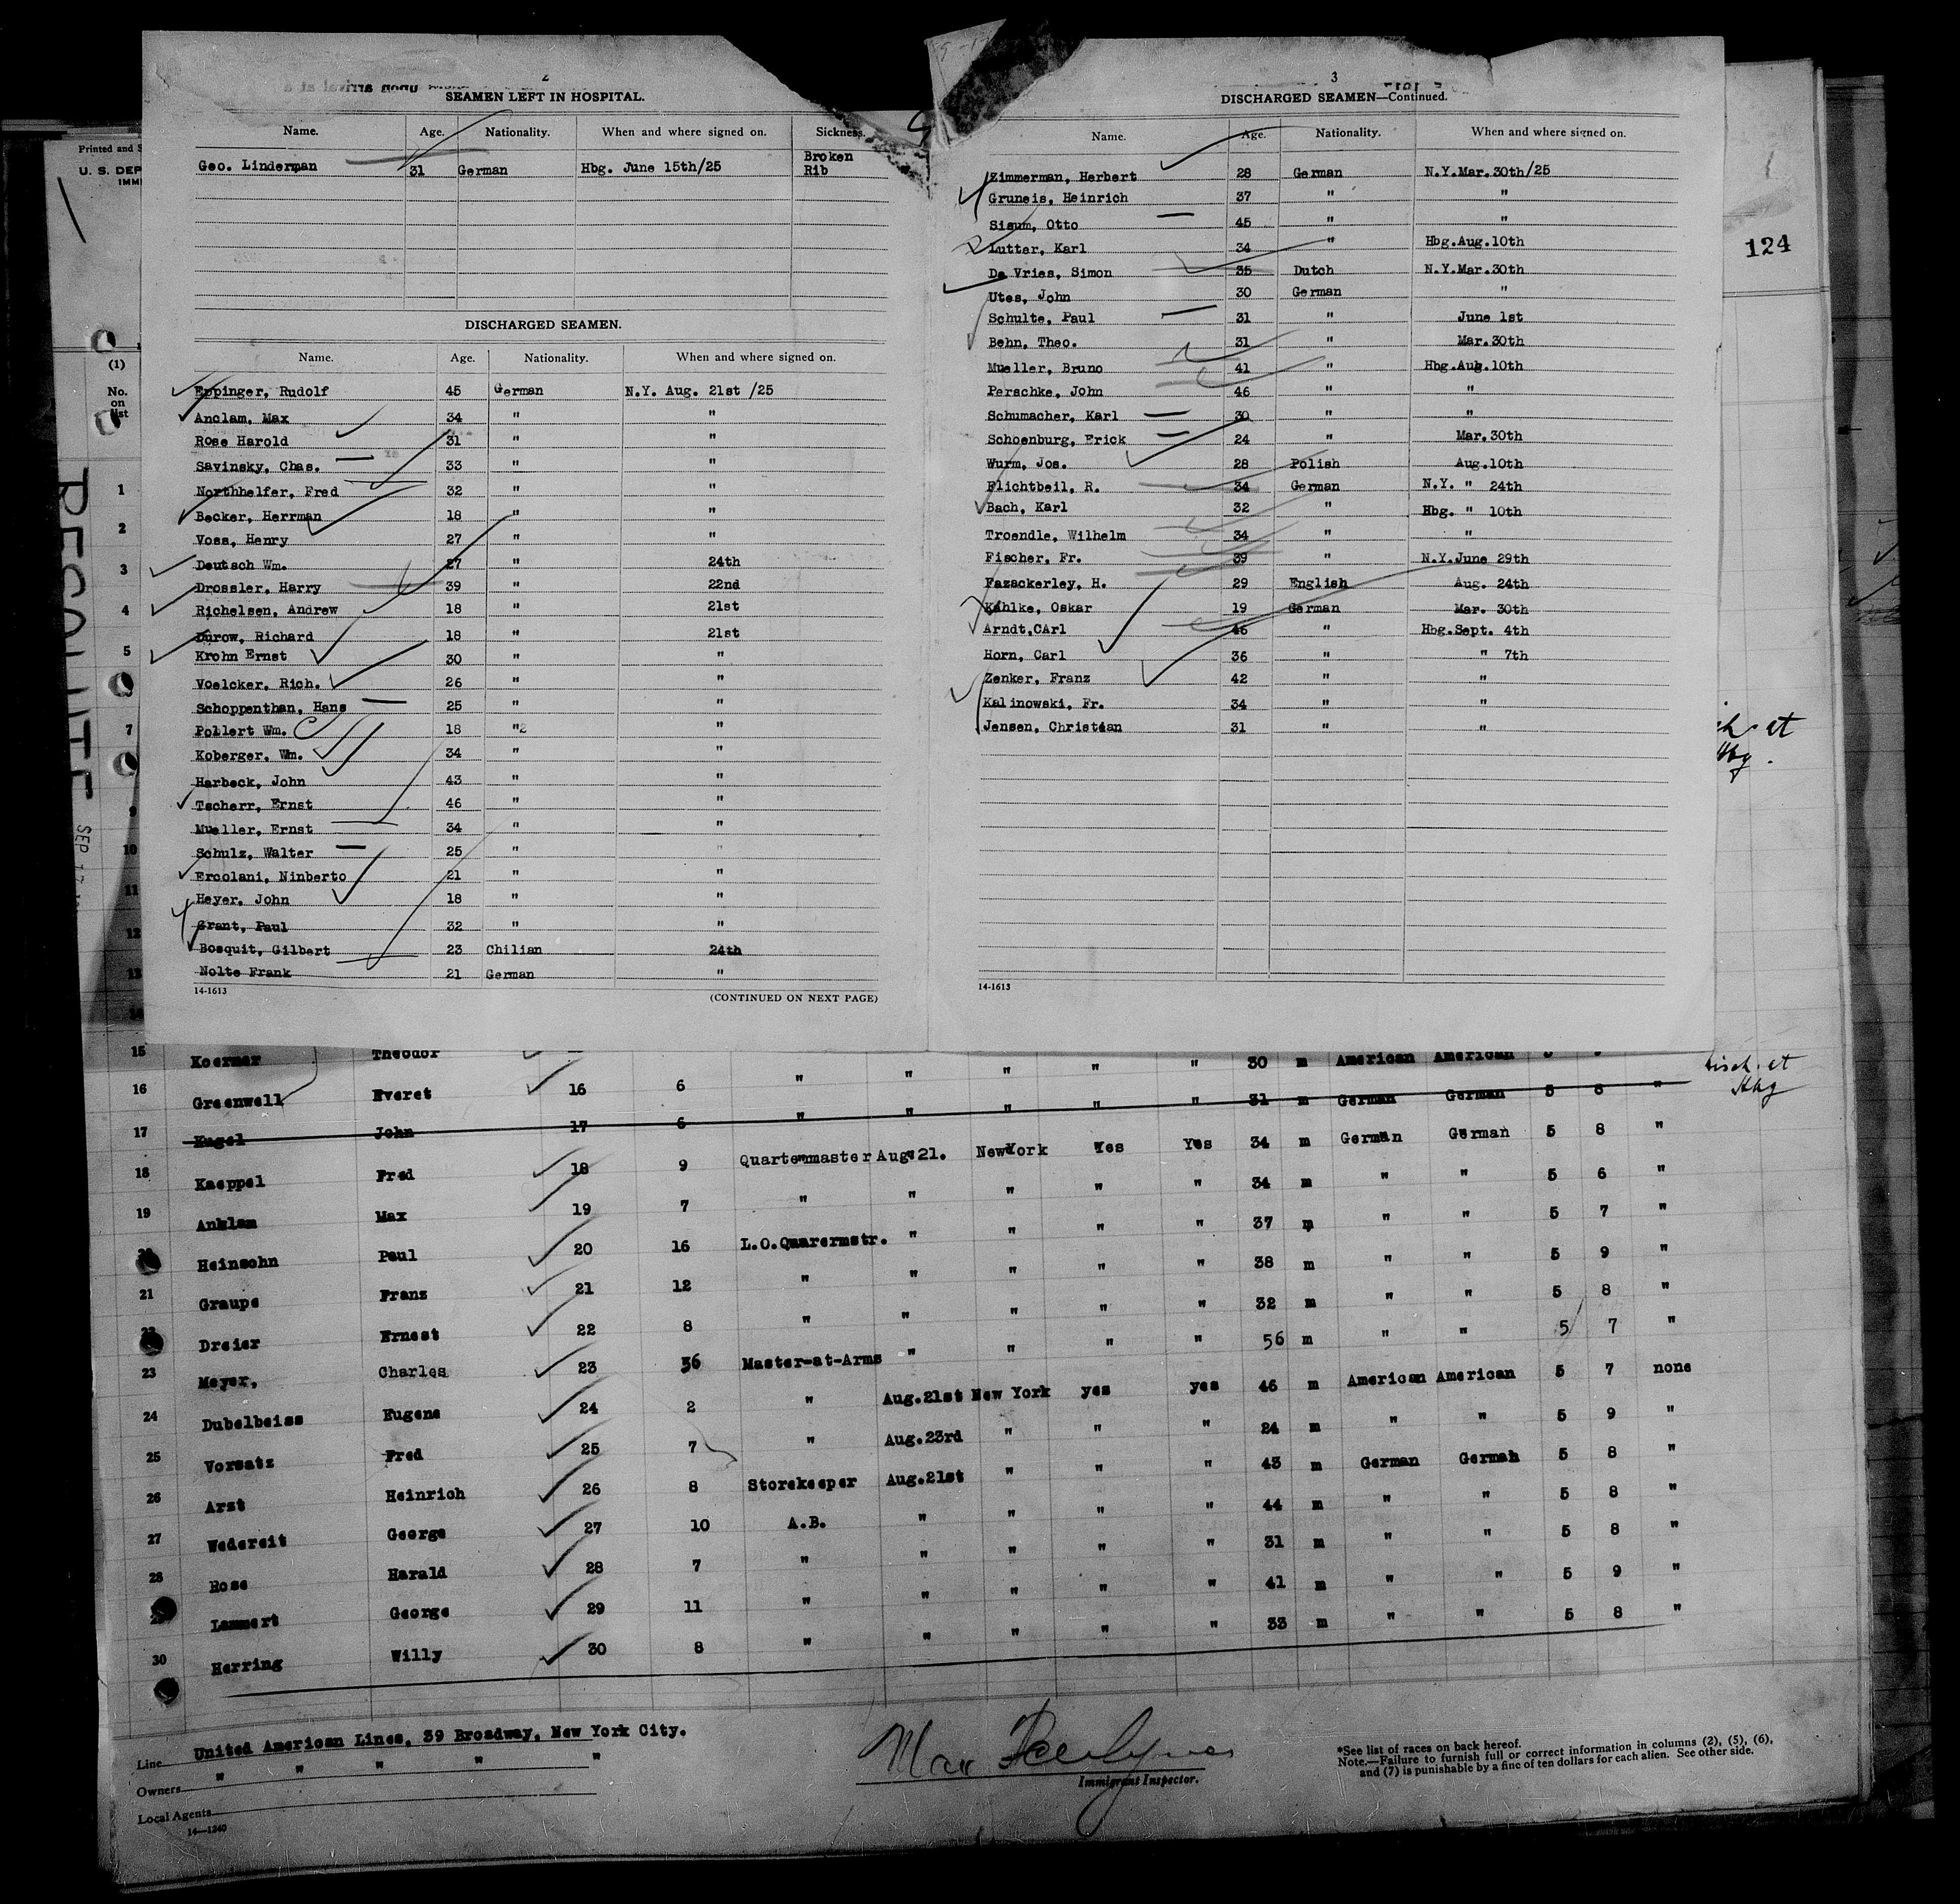 2
SEAMEN LEFT IN HOSPITAL.
Name. Age. Nationality. When and where signed on. Sickness.
Geo. Linderman 31 German Hbg. June 15th/25 Broken Rib
DISCHARGED SEAMEN.
Name. Age. Nationality. When and where signed on.
Eppinger, Rudolf 45 German N.Y. Aug. 21st /25
Anclam, Max 34 " "
Rose Harold 31 " "
Savinsky, Chas. 33 " "
Northhelfer, Fred 32 " "
Becker, Herrman 18 " "
Voss, Henry 27 " "
Deutsch Wm. 27 " 24th
Drossler, Harry 39 " 22nd
Richelsen, Andrew 18 " 21st
Durow, Richard 18 " 21st
Krohn Ernst 30 " "
Voelcker, Rich. 26 " "
Schoppenthan, Hans 25 " "
Pollert Wm. 18 " "
Koberger, Wm. 34 " "
Harbeck, John 43 " "
Tscherr, Ernst 46 " "
Mueller, Ernst 34 " "
Schulz, Walter 25 " "
Ercolani, Ninberto 21 " "
Heyer, John 18 " "
Grant, Paul 32 " "
Bosquit, Gilbert 23 Chilian 24th
Nolte Frank 21 German "
14-1613
(CONTINUED ON NEXT PAGE)
3
DISCHARGED SEAMEN—Continued.
Name. Age. Nationality. When and where signed on.
Zimmerman, Herbert 28 German N.Y.Mar.30th/25
Gruneis, Heinrich 37 " "
Sisum, Otto 45 " "
Lutter, Karl 34 " Hbg.Aug.10th
De Vries, Simon 35 Dutch N.Y.Mar.30th
Utes, John 30 German "
Schulte, Paul 31 " June 1st
Behn, Theo. 31 " Mar.30th
Mueller, Bruno 41 " Hbg.Aug.10th
Perschke, John 46 " "
Schumacher, Karl 30 " "
Schoenburg, Erick 24 " Mar.30th
Wurm, Jos. 28 Polish Aug.10th
Flichtbeil, R. 34 German N.Y. " 24th
Bach, Karl 32 " Hbg. " 10th
Troendle, Wilhelm 34 " "
Fischer, Fr. 39 " N.Y.June 29th
Fazackerley, H. 29 English Aug. 24th
Kahlke, Oskar 19 German Mar. 30th
Arndt,CArl 46 " Hbg.Sept. 4th
Horn, Carl 36 " " 7th
Zenker, Franz 42 " "
Kalinowski, Fr. 34 " "
Jensen, Christian 31 " "
14-1613
124
Printed and S
U. S. DEP
IMMI
(1)
No. on list
1
2
3
4
5
7
9
10
11
12
13
14
RESOLUTE
SEP 17
15 Koerner Theodor " " " " " 30 m American American
16 Greenwell Everet 16 6 " " " " " 31 m German German 5 8 "
disch. at Hbg
17 Kugel John 17 6 " " 34 m German German 5 8 "
18 Kaeppel Fred 18 9 Quartermaster Aug.21. NewYork Yes Yes 34 m " " 5 6 "
19 Anklam Max 19 7 " " " " " 37 m " " 5 7 "
20 Heinsohn Paul 20 16 L.O.Quarermstr. " " " " 38 m " " 5 9 "
21 Graupe Franz 21 12 " " " " " 32 m " " 5 8 "
22 Dreier Ernest 22 8 " " " " " 56 m " " 5 7 "
23 Meyer, Charles 23 36 Master-at-Arms " " " " 46 m American American 5 7 none
24 Dubelbeiss Eugene 24 2 " Aug.21st New York yes yes 24 m " " 5 9 "
25 Vorsatz Fred 25 7 " Aug.23rd " " " 43 m German German 5 8 "
26 Arst Heinrich 26 8 Storekeeper Aug.21st " " " 44 m " " 5 8 "
27 Wedereit George 27 10 A.B. " " " " 31 m " " 5 8 "
28 Rose Harald 28 7 " " " " " 41 m " " 5 9 "
29 Lammert George 29 11 " " " " " 33 m " " 5 8 "
30 Herring Willy 30 8 " " " " "
Line United American Lines, 39 Broadway, New York City.
Owners " " " " "
Local Agents
14—1240
Max
Immigrant Inspector.
*See list of races on back hereof.
Note.—Failure to furnish full or correct information in columns (2), (5), (6),
and (7) is punishable by a fine of ten dollars for each alien. See other side.